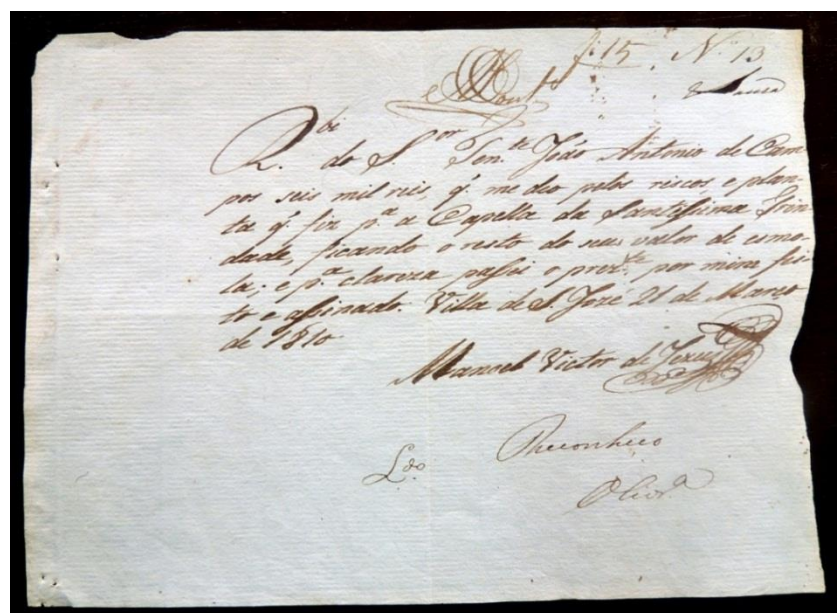 f. 15 N.º 13
R.bi do S.or Ten.te João Antonio de Cam
pos seis mil reis, q̃. me deo pelos riscos, e plan-
ta q̃. fiz p.a a Capella da Santissima Trin
dade, ficando o resto do seu valor de esmo-
la; e p.a clareza passei o prez.te por mim fei-
to e assinado. Villa de S. Jozé 21 de Março
de 1810
Manoel Victor de Jezus
Reconheco
L.do
Olivr.a